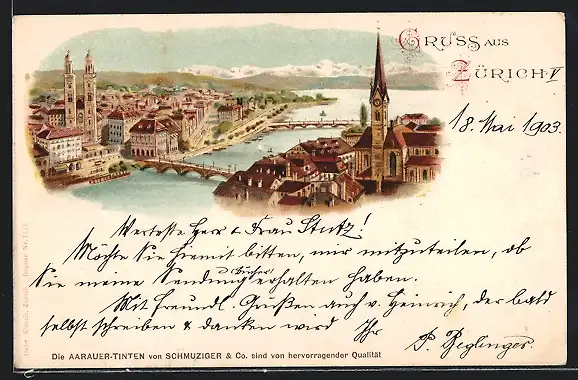 GRUSS AUS
ZÜRICH V
18. Mai 1903.
Werteste Herr & Frau Stutz!
Möchte Sie hiemit bitten, mir mitzuteilen, ob
Sie meine Sendung u. Bücher erhalten haben.
Mit freundl. Grüßen auch v. Heinrich, der bald
selbst schreiben & danken wird Ihr
P. Keglinger
Die AARAUER-TINTEN von SCHMUZIGER & Co. sind von hervorragender Qualität